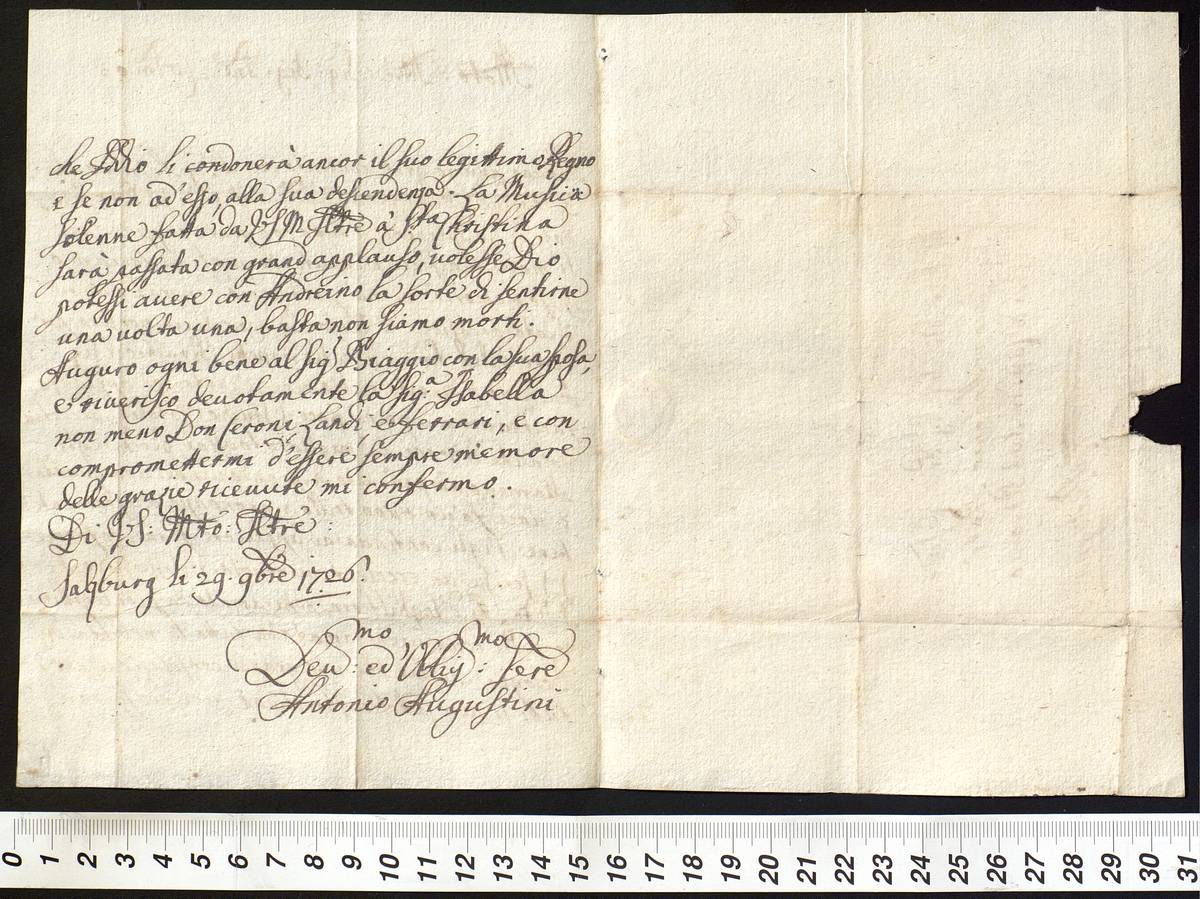 che Iddio li condonerà ancor il suo legittimo Regno
e se non ad'esso, alla sua descendenza. La Musica
solenne fatta da V.S. M Iltre à Sta Christina
sarà passata con grand applauso, volesse Dio
potessi avere con Andreino la sorte di sentirne
una volta una, basta non siamo morti.
Auguro ogni bene al sigr Biaggio con la sua sposa,
e riverisco devotamente la sig.a Isabella
non meno Don Ceroni, Landi, e Ferrari, e con
compromettermi d'essere sempre memore
delle grazie ricevute mi confermo.
Di V.S: Mto: Iltre:
Salzburg li 29. 9bre 1726.
Devmo: ed Obligmo: Sere
Antonio Augustini
0 1 2 3 4 5 6 7 8 9 10 11 12 13 14 15 16 17 18 19 20 21 22 23 24 25 26 27 28 29 30 31